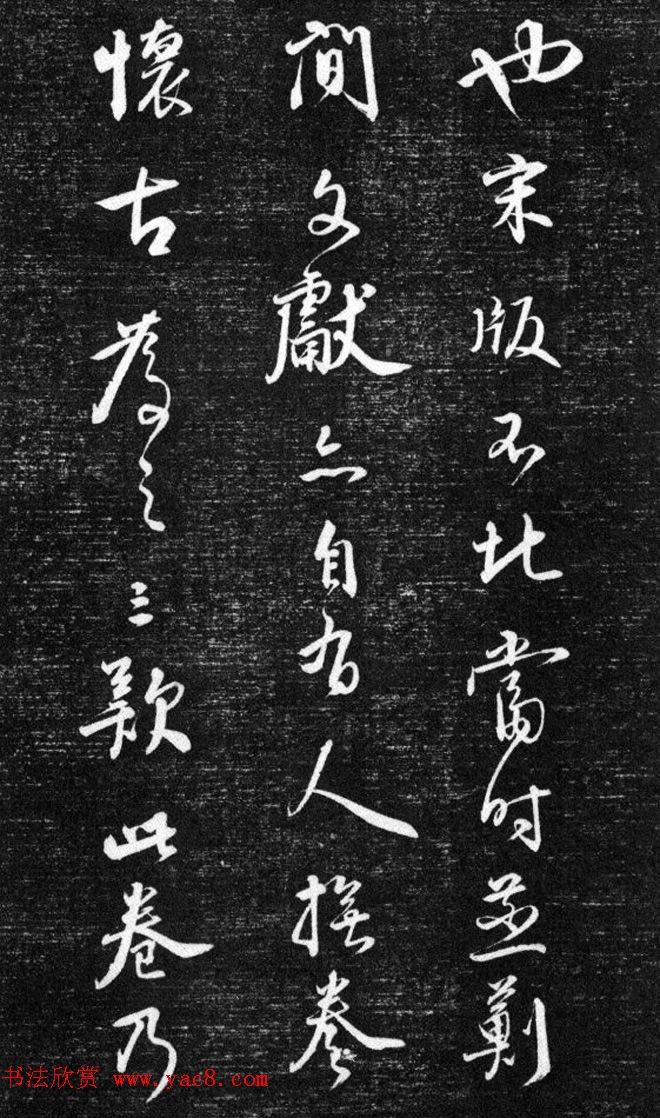 也宋版不比當時燕薊
間文獻亦自有人撫卷
懷古為之三歎此卷乃
书法欣赏 www.yac8.com